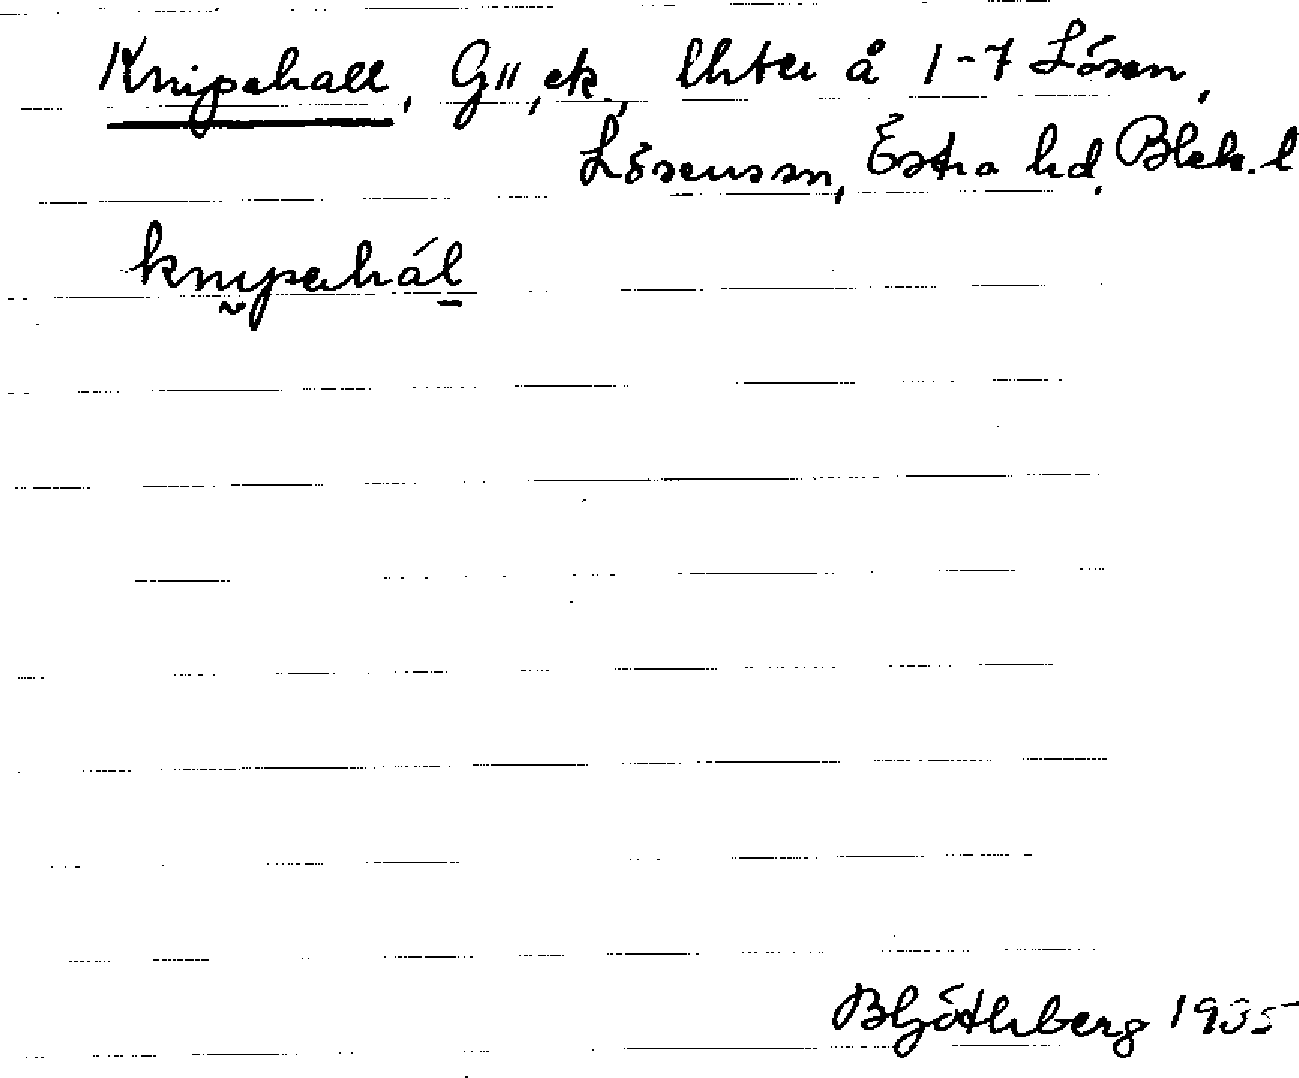 Knipehall, G11, ek, lhteu å 1-7 Lösen,
Lösens sn, Östra hd, Blek. l
knipehál
B Göthberg 1935